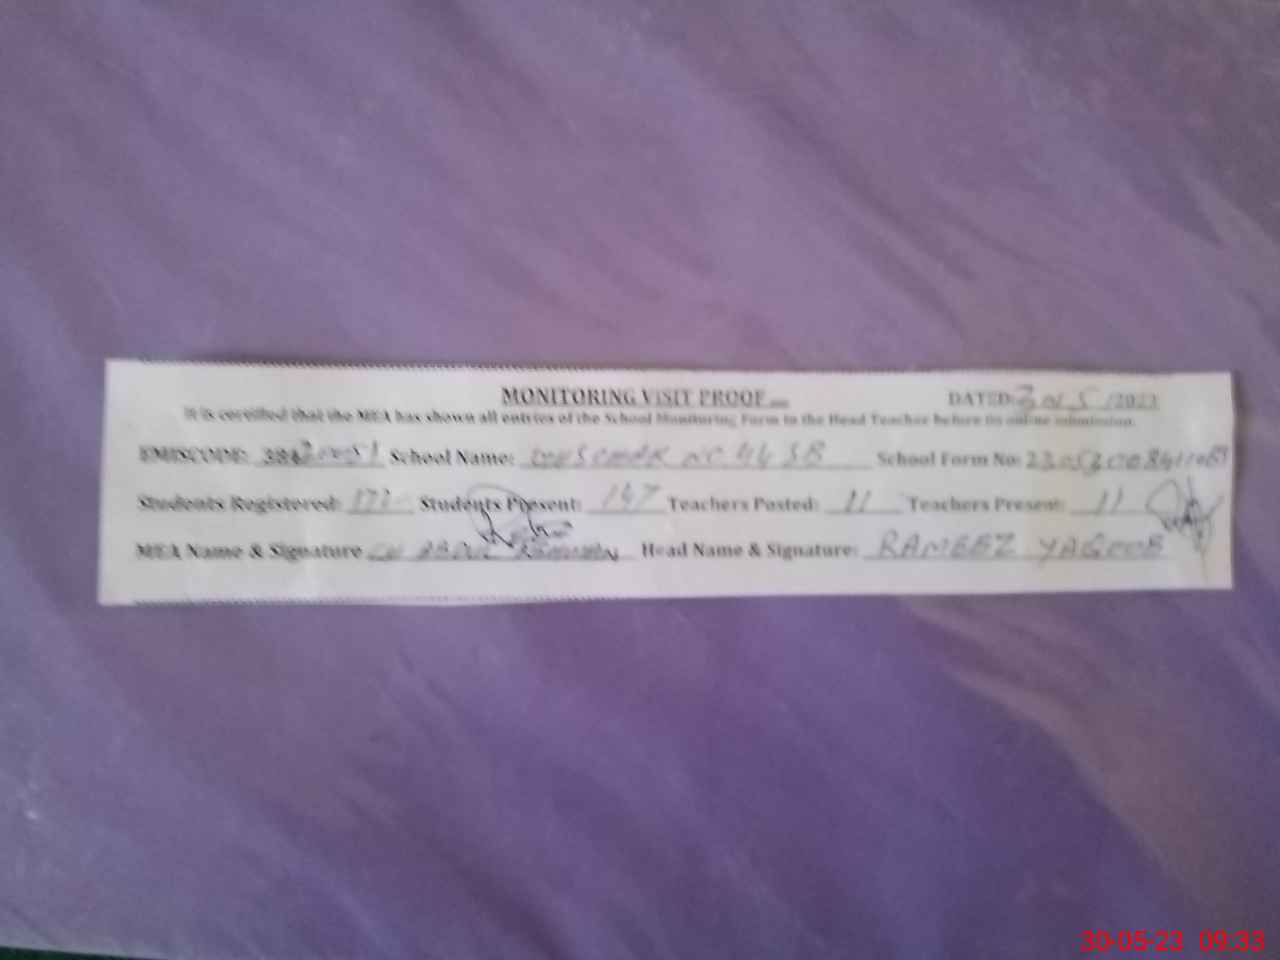 MONITORING VISIT PROOF
DATED: /2023
It is certified that the MEA has shown all entries of the School Monitoring Form to the Head Teacher before its online submission.
EMISCODE: School Name: CHAK NO 44 SB School Form No:
Students Registered: Students Present: 147 Teachers Posted: 11 Teachers Present: 11
MEA Name & Signature CH ABDUL Head Name & Signature: RAMEEZ YAQOOB
30-05-23 09:33